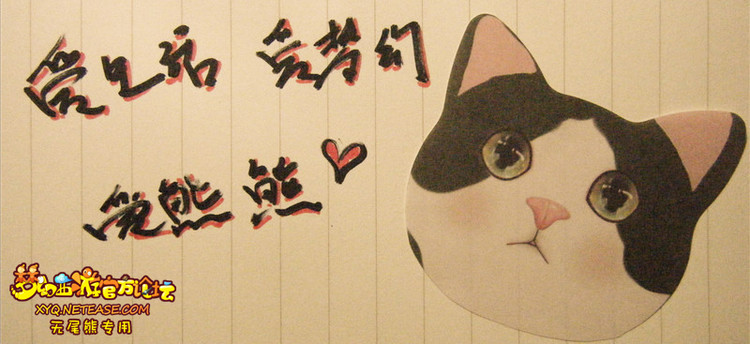 爱生活 爱梦幻
爱熊熊
梦幻西游官方论坛
XYQ.NETEASE.COM
无尾熊专用